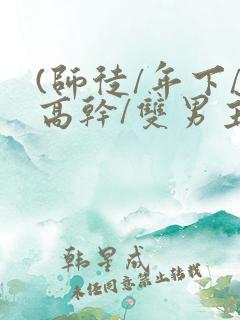 (師徒/年下/
高幹/雙男主
韩星成
未经同意禁止转载